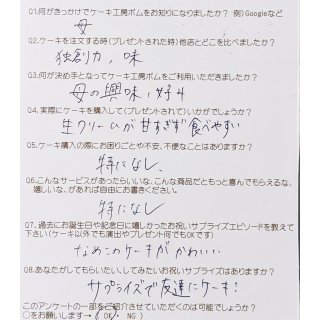 Q1.何がきっかけでケーキ工房ボムをお知りになりましたか？ 例)Googleなど
母
Q2.ケーキを注文する時(プレゼントされた時)他店とどこを比べましたか？
独創力、味
Q3.何が決め手となってケーキ工房ボムをご利用いただきましたか？
母の興味、好み
Q4.実際にケーキを購入して(プレゼントされて)いかがでしょうか？
生クリームが甘すぎず食べやすい
Q5.ケーキ購入の際にお困りごとや不安、不便なことはありますか？
特になし、
Q6.こんなサービスがあったらいいな、こんな商品だともっと喜んでもらえるな、
嬉しいな、があれば自由にお書きください。
特になし
Q7.過去にお誕生日や記念日に嬉しかったお祝いサプライズエピソードを教えて
下さい(ケーキ以外でも演出やプレゼント何でもOKです)
なめこのケーキがかわいい
Q8.あなたがしてもらいたい、してみたいお祝いサプライズはありますか？
サプライズで友達にケーキ!
このアンケートの一部をご紹介させていただくのは可能でしょうか？
○をお願いします→ ( OK NG )